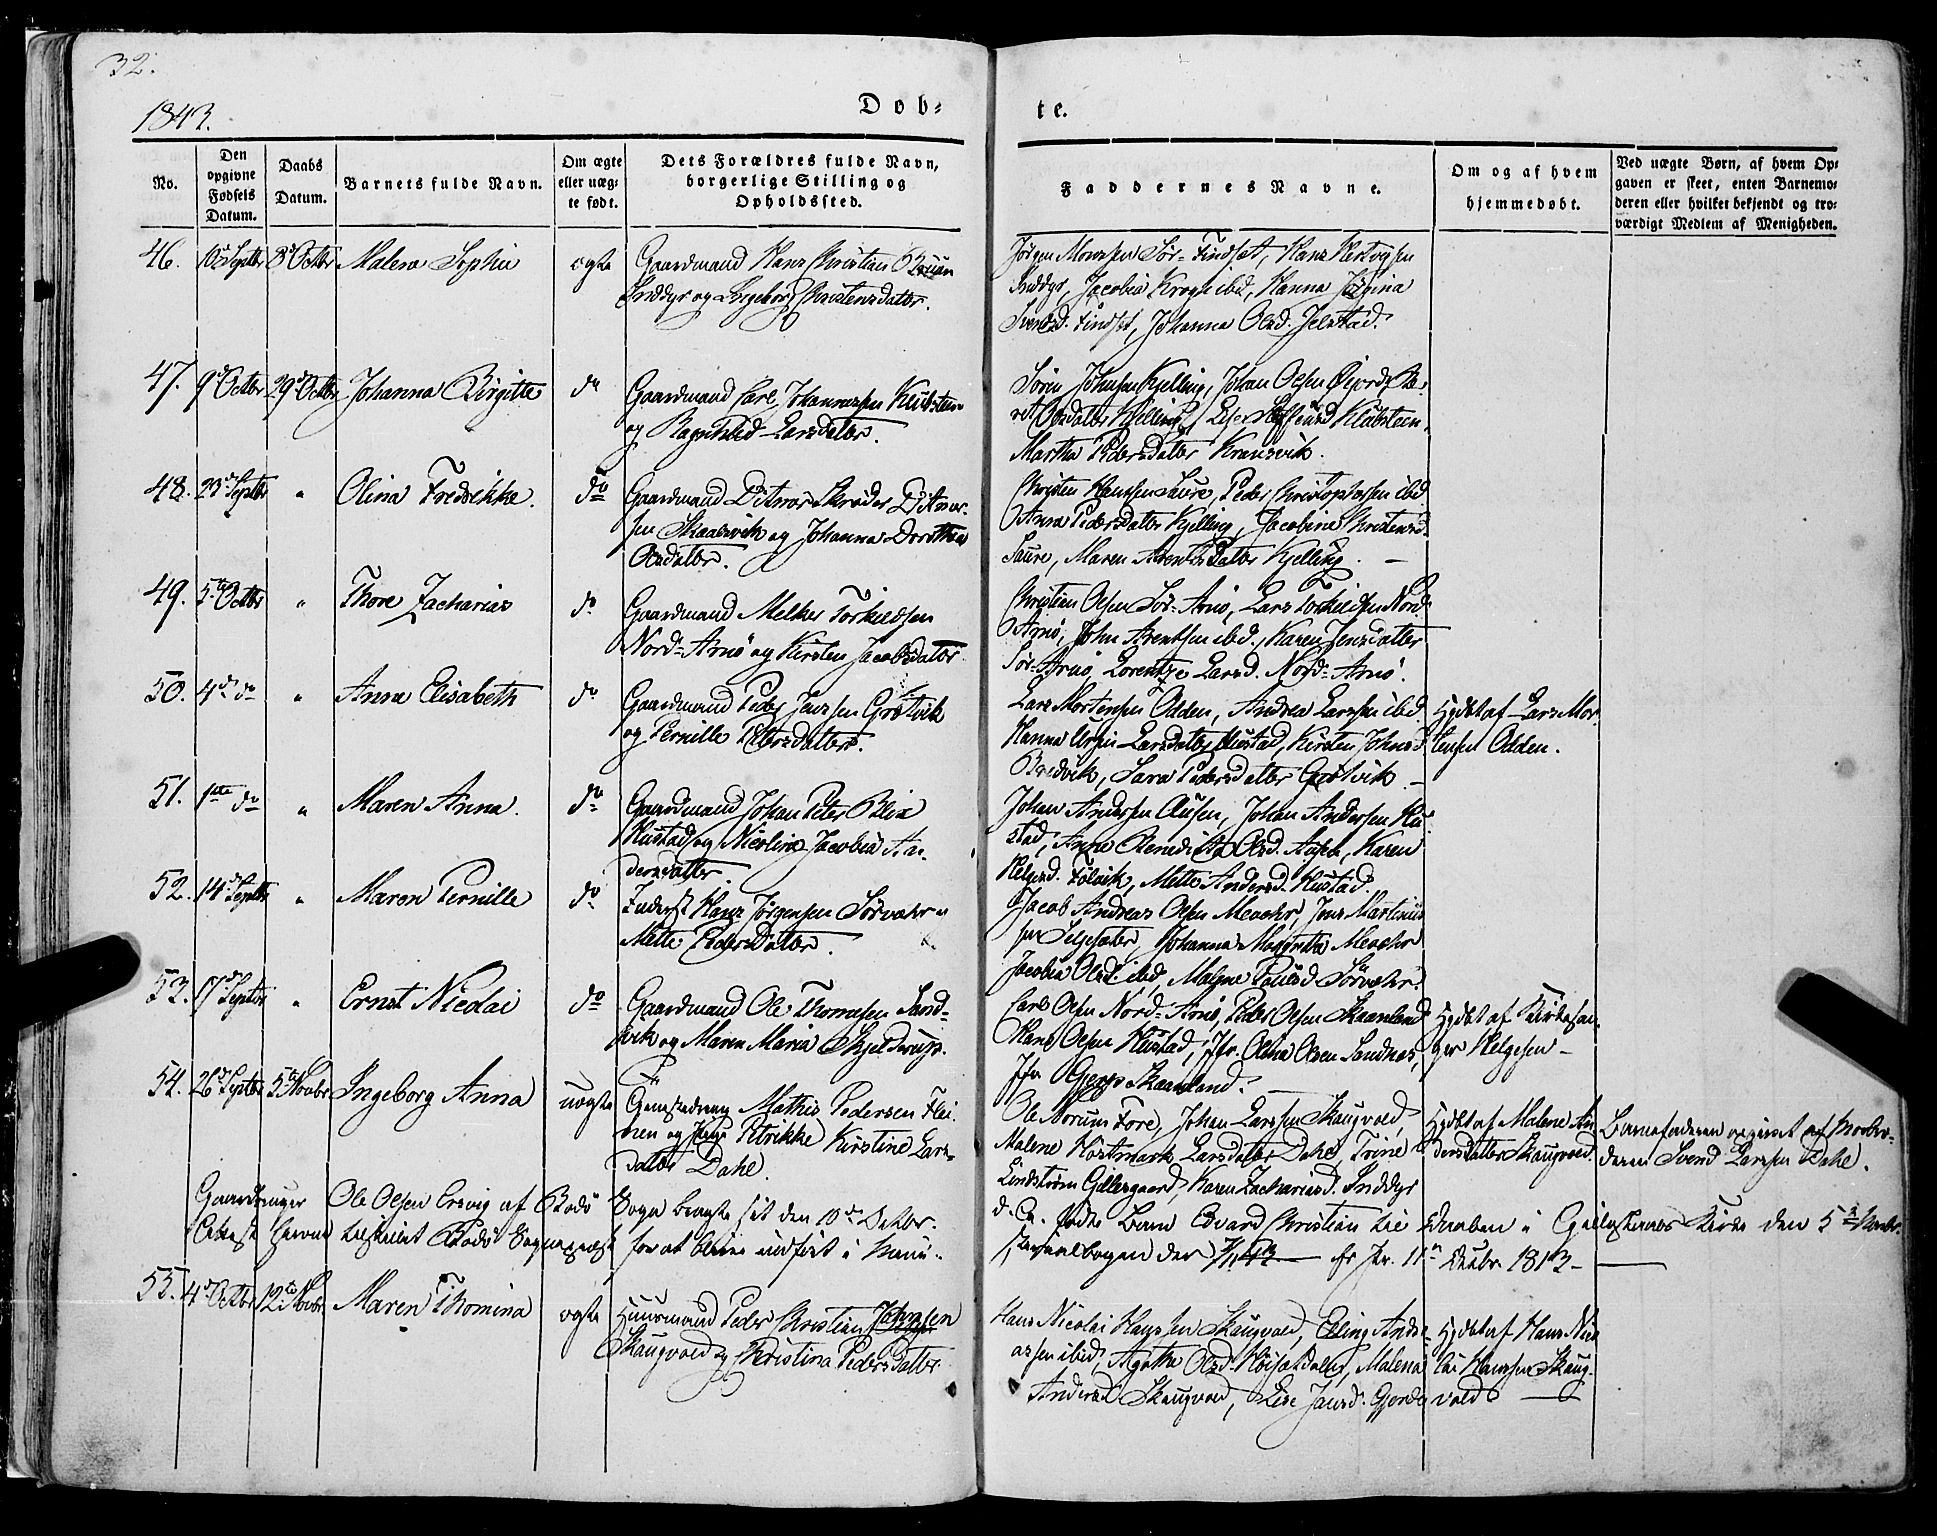 32.
1843.
Døb-
te.
No.
Den opgivne Fødsels Datum.
Daabs Datum.
Barnets fulde Navn.
Om ægte eller uægte født.
Dets Forældres fulde Navn, borgerlige Stilling og Opholdssted.
Faddernes Navne.
Om og af hvem hjemmedøbt.
Ved uægte Børn, af hvem Op-
gaven er skeet, enten Barnemo-
deren eller hvilket bekjendt og tro-
værdigt Medlem af Menigheden.
46. 10 Septbr 8 Octbr Malena Sophia ægte Gaardmand Hans Christian
Inddyr og Ingeborg Christensdatter.
Jørgen Monssen Sør-Findset, Hans Hertvigsen
Inddyr, Jacobia Krogh ibid, Hanna
Findset, Johanna Olsd. Jelstad.
47. 9d Octbr 29d Octbr Johanna Birgitte do Gaardmand Carl Johannessen Klubsteen
og Ragnhild Larsdatter.
Søren Johnsen Kjelling, Johan Olsen
Olsdatter Kjelling, Klubsteen,
Martha Pedersdatter Kransvik.
48. 23d Septbr " Olina Fredrikke. do Gaardmand Ditmar Skrøder Ditmar-
sen Skaalsvik og Johanna Dorothea
Olsdatter.
Christen Hanssen Saure, Peder Christophersen ibid
Anna Pedersdatter Kjelling, Jacobine Christensd.
Saure, Maren Arentsdatter Kjelling. —
49. 5te Octbr " Thore Zacharias do Gaardmand Melker Torkildsen
Nord-Arnø og Kirsten Jacobsdatter
Christian Olsen Sør-Arnø, Lars Torkildsen Nord-
Arnø, John Arentsen ibid, Karen Jensdatter
Sør-Arnø, Lorentze Larsd. Nord-Arnø.
50. 4d do " Anna Elisabeth do Gaardmand Peder Jenssen Grøtvik
og Pernille Petersdatter.
Lars Mortensen Odden, Andrea Larssen ibid
Hanna Larsdatter Hustad, Kirsten Johnsd
Bredvik, Sara Pedersdatter Grøtvik —
Hjdbt af Lars Mor-
tensen Odden.
51. 1ste do " Maren Anna. do Gaardmand Johan Peter Blix
Hustad og Nicolina Jacobia An-
dersdatter.
Johan Andersen Ausen, Johan Andersen Hu-
stad, Anna Benedikta Olsd. Ausen, Karen
Helgesd. Følvik, Mette Andersd. Hustad.
52. 14d Septbr " Maren Pernille do Inderst Hans Jørgensen Sørvær og
Mette Pedersdatter.
Jacob Andreas Olsen Mevær, Jens Martinus-
sen Selsæter, Johanna Margrethe Mevær
Jacobia Olsd. ibid, Malene Poulsd Sørvær.
53. 17d Septbr " Ernst Nicolai do Gaardmand Ole Thomesen Sand-
vik og Maren Maria Skjelderup.
Carl Olsen Nord-Arnø, Peder Olsen Skaanland
Hans Olsen Hustad, Jfr. Olina Olsen Sandnæs,
Jfr Skaanland.
Hjdbt af Kirkesan-
ger Helgesen —
54. 26d Septbr 5te Novbr Ingeborg Anna uægte Mathis Pedersen Flei-
nen og Pige Petrikke Kirstine Lars-
datter Dahl.
Ole Norum Fore, Johan Larssen Skaugvold,
Malene Hartmark Larsdatter Dahl, Trine
Lindstrøm Gildesgaard, Karen Zachariasd. Inddyr
Hjdbt af Malene An-
dersdatter Skaugvold.
Barnefaderen opgivet af Morbro-
deren Svend Larssen Dahl.
Ole Olsen af Bodø Sogn bragte sit den 10de Octbr.
d. A. fødte Barn Edvard Christian til Daaben i Gildeskaals Kirke den 5te Novbr.
for at blive indført i
11te Decbr 1843 —
55. 4d Octbr 12te Novbr Maren Thomina ægte Huusmand Peder Christian
Skaugvold og Christina Pedersdatter
Hans Nicolai Hanssen Skaugvold, Elling Andre-
assen ibid, Agathe Olsd. Malena
Andersd Skaugvold, Lise Jansd.
Hjdbt af Hans Nico-
lai Hanssen Skaug-
vold —